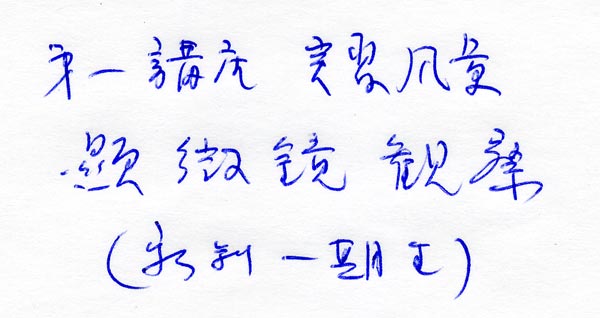 第一講座 実習風景
顕微鏡観察
(永利一期生)